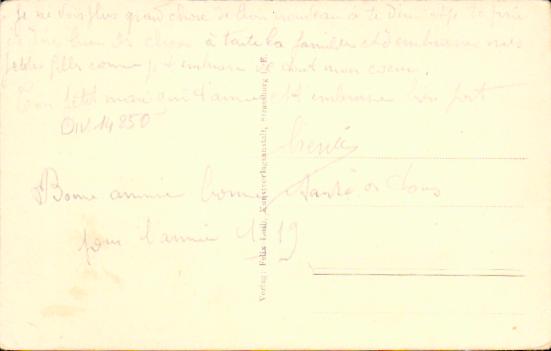 Je ne vois plus grand chose de bien nouveau à te dire
de dire bien des choses à toute la famille et d'embrasser mes
petites filles comme je t'embrasse de tout mon coeur.
Ton petit mari qui t'aime et t'embrasse bien fort
DIV 14 250
Bonne année bonne santé à tous
pour l'année 1919
Verlag: Felix Luib, Kunstverlagsanstalt, Strassburg i. E.